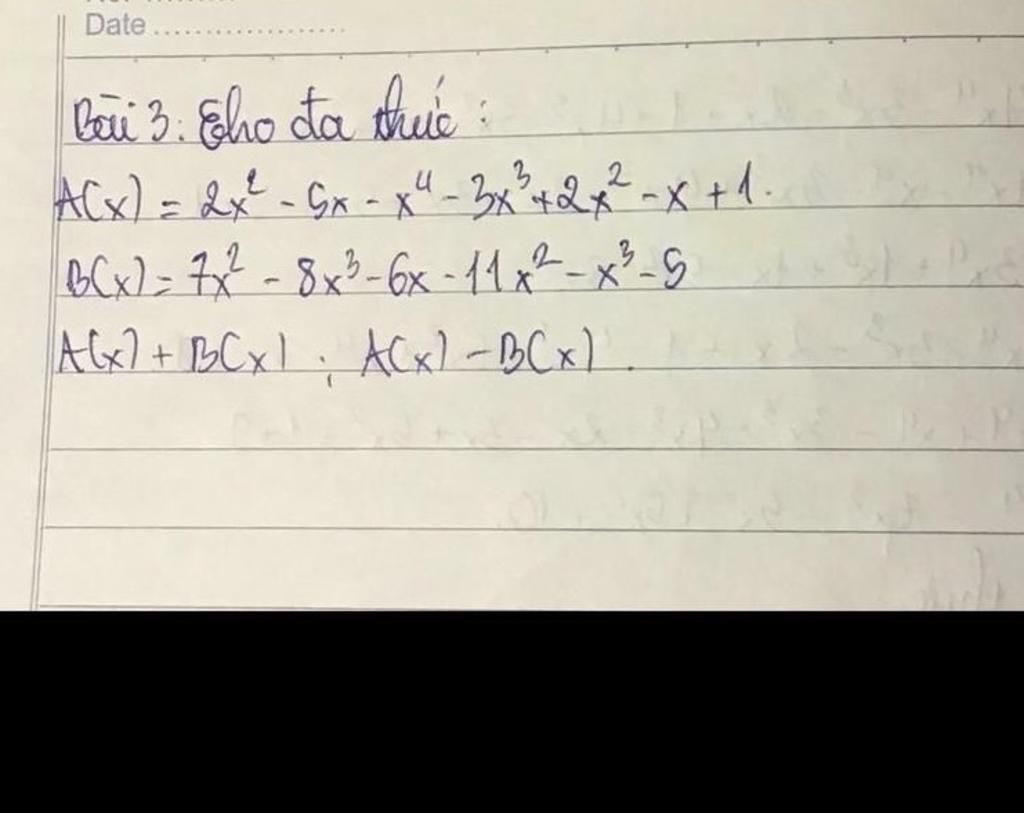 Date ...................
Bài 3: Cho đa thức :
A(x) = 2x² - 5x - x⁴ - 3x³ + 2x² - x + 1.
B(x) = 7x² - 8x³ - 6x - 11x² - x³ - 5
A(x) + B(x) ; A(x) - B(x) .